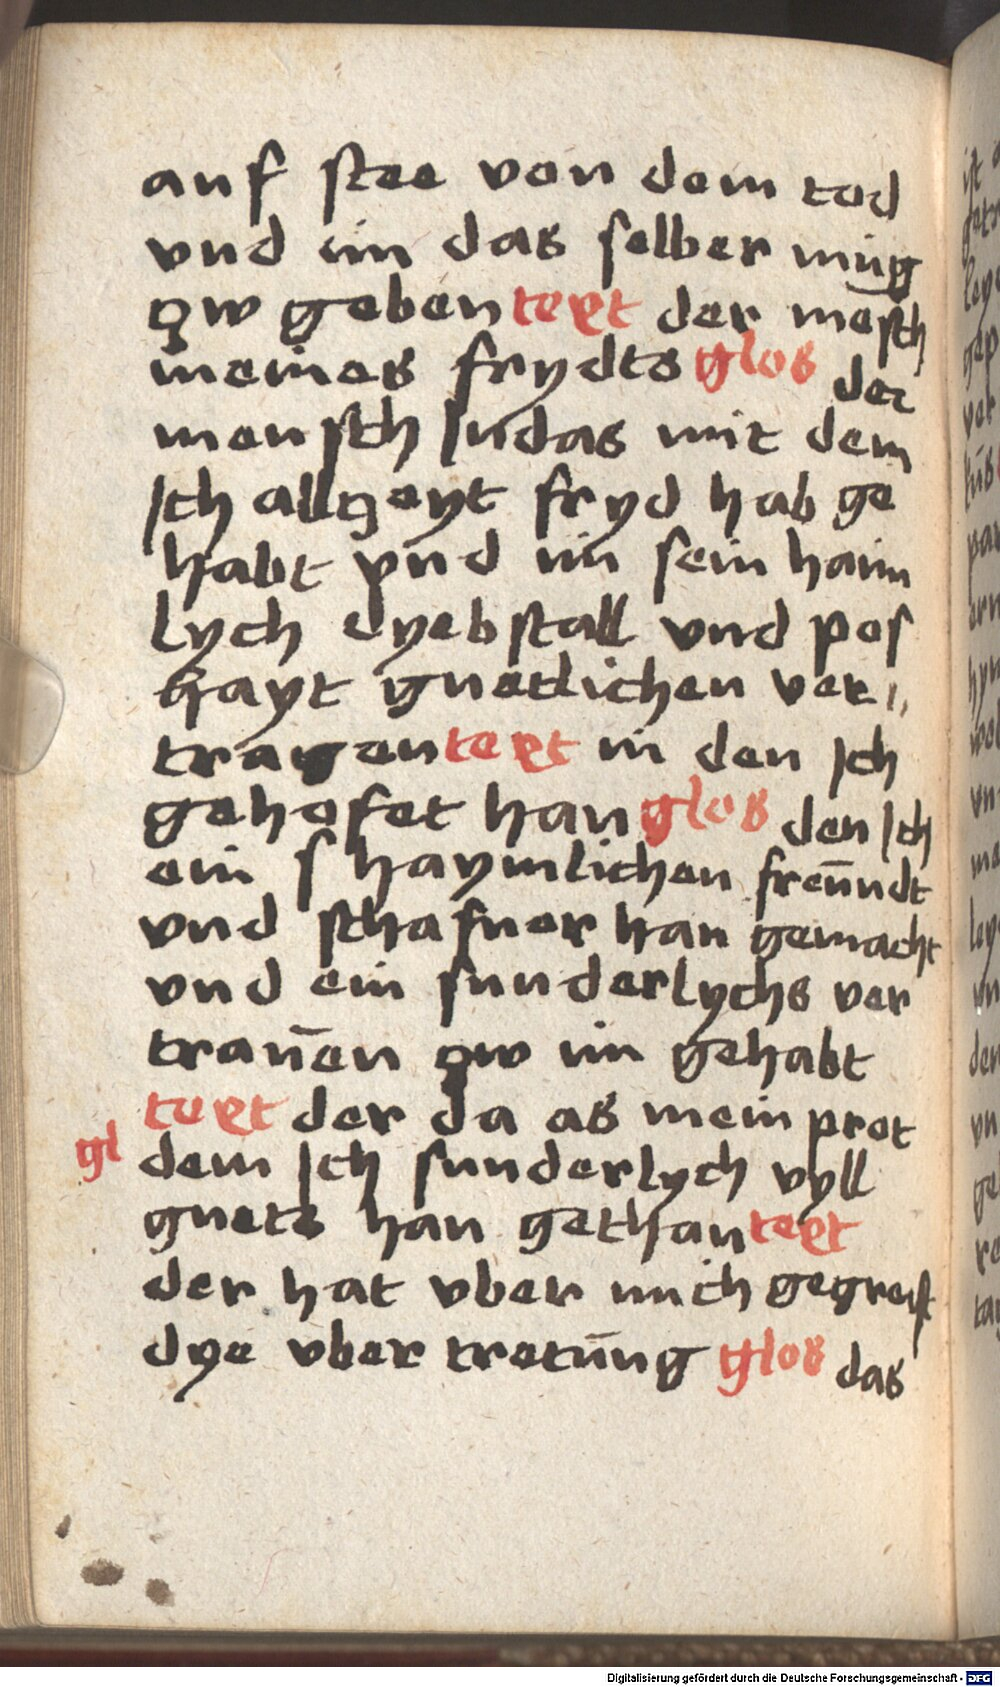 auf stee von dem tod
vnd im das selber müg
zw geben text der mēsch
meines frydts glos der
mensch Iudas mit dem
Ich allzeyt fryd hab ge
habt vnd im sein haim
lych dyebstall vnd pos
hayt guetlichen ver⸗
tragen text in den Ich
gehofet han glos den Ich
ein haymlichen freūndt
vnd schafner han gemacht
vnd ein sunderlychs ver
traūen zw im gehabt
text der da as mein prot
gl dem Ich sunderlych vyll
guets han gethan text
der hat vber mich gegreift
dye vber tretūng glos das
Digitalisierung gefördert durch die Deutsche Forschungsgemeinschaft - DFG